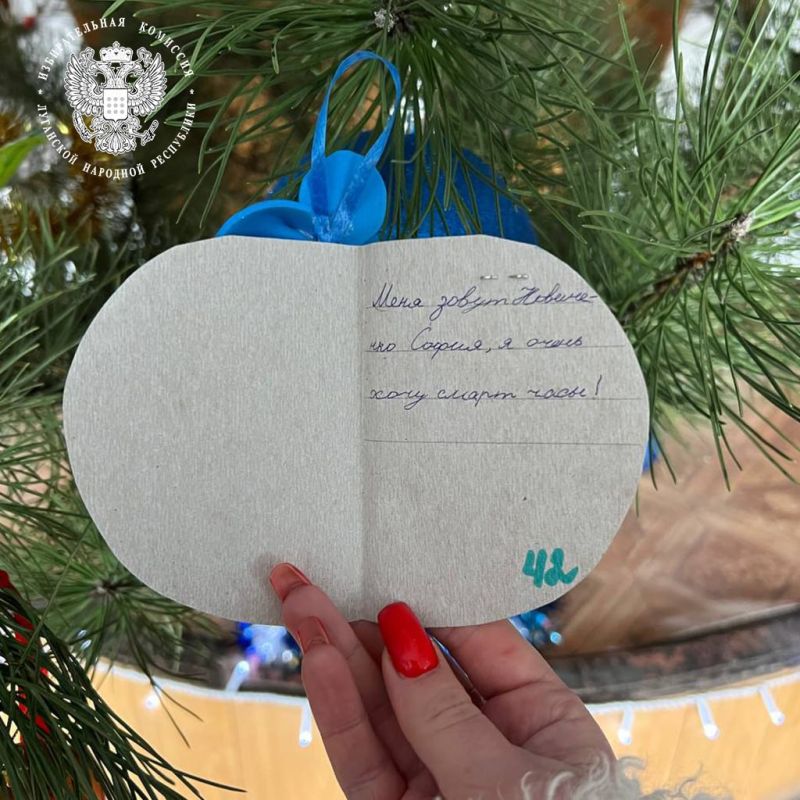 ИЗБИРАТЕЛЬНАЯ КОМИССИЯ
ЛУГАНСКОЙ НАРОДНОЙ РЕСПУБЛИКИ
Меня зовут
нко София, я очень
хочу смарт часы!
42